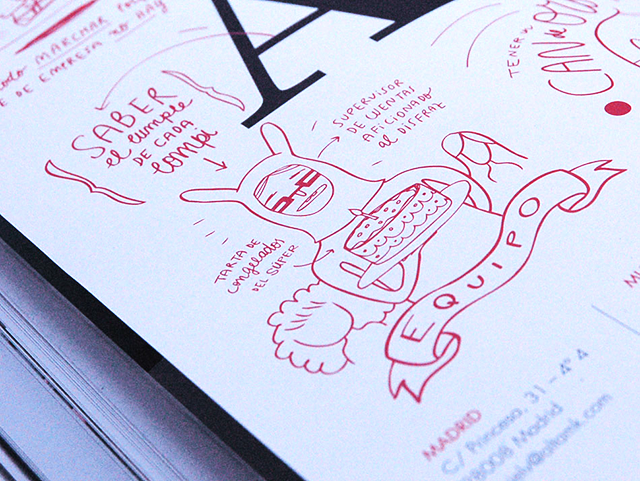 MARCHAR
DE EMPRESA NO HAY
A
TENER UN
CAN
SABER
el cumple
DE CADA
compi
SUPERVISOR
DE CUENTAS
AFICIONADO
al DISFRAZ
TARTA DE
congelados
DEL SÚPER
EQUIPO
MADRID
C/ Princesa, 31 - 4º 4
28008 Madrid